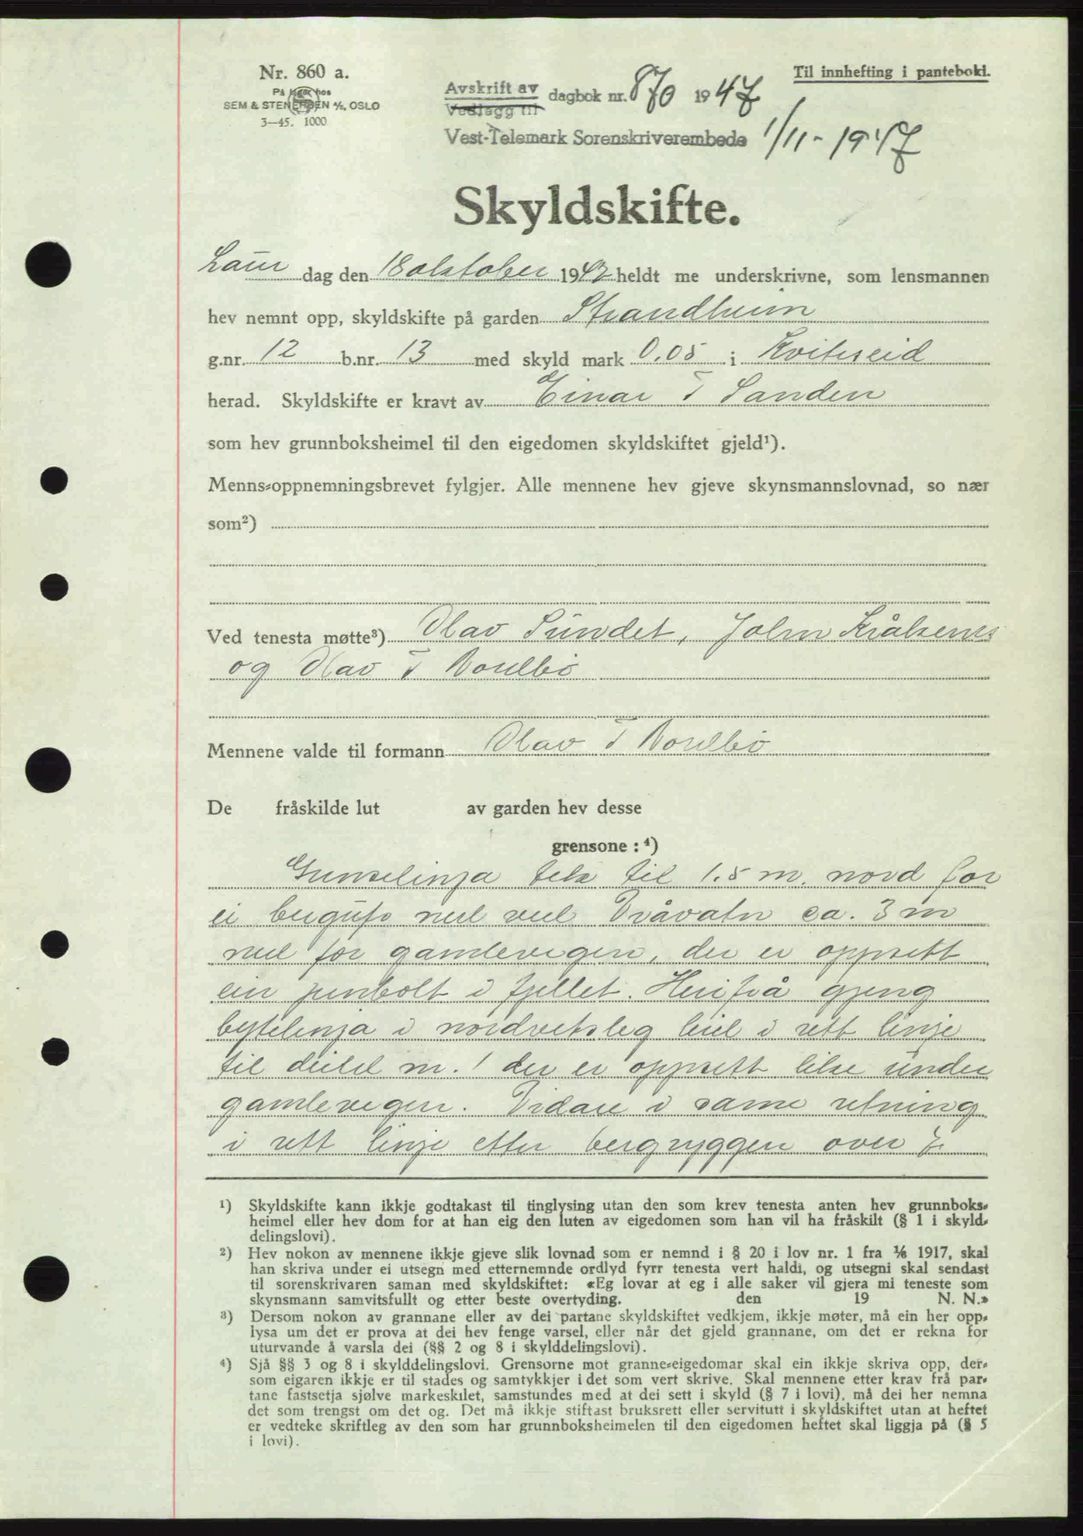 Nr. 860 a.
På lager hos
SEM & STENERSEN A/S, OSLO
3—45. 1000
Til innhefting i pantebokl.
Avskrift av dagbok nr. 870 1947
Vedlegg til
Vest-Telemark Sorenskriverembede 1/11-1947
Skyldskifte.
Laur dag den 18 oktober 1947 heldt me underskrivne, som lensmannen
hev nemnt opp, skyldskifte på garden Strandheim
g.nr. 12 b.nr. 13 med skyld mark 0,05 i Kviteseid
herad. Skyldskifte er kravt av Einar T Sanden
som hev grunnboksheimel til den eigedomen skyldskiftet gjeld¹).
Menns-oppnemningsbrevet fylgjer. Alle mennene hev gjeve skynsmannslovnad, so nær
som²)
Ved tenesta møtte³) Olav Sundet, John Kråkenes
og Olav T Nordbö
Mennene valde til formann Olav T Nordbö
De fråskilde lut av garden hev desse
grensone : ⁴)
Grenselinja tek til 1.5 m. nord for
ei berguft ned ved Dråvatn ca. 3 m
ned for gamlevegen, der er oppsett
ein jernbolt i fjellet. Herifrå gjeng
bytelinja i nordvestleg leid i rett linje
til deild m. 1 der er oppsett like under
gamlevegen. Vidare i same retning
i rett linje etter bergryggen over
¹) Skyldskifte kann ikkje godtakast til tinglysing utan den som krev tenesta anten hev grunnboks-
heimel eller hev dom for at han eig den luten av eigedomen som han vil ha fråskilt (§ 1 i skyld-
delingslovi).
²) Hev nokon av mennene ikkje gjeve slik lovnad som er nemnd i § 20 i lov nr. 1 fra 1/6 1917, skal
han skriva under ei utsegn med etternemnde ordlyd fyrr tenesta vert haldi, og utsegni skal sendast
til sorenskrivaren saman med skyldskiftet: «Eg lovar at eg i alle saker vil gjera mi teneste som
skynsmann samvitsfullt og etter beste overtyding. den 19 N. N.»
³) Dersom nokon av grannane eller av dei partane skyldskiftet vedkjem, ikkje møter, må ein her opp-
lysa um det er prova at dei hev fenge varsel, eller når det gjeld grannane, om det er rekna for
uturvande å varsla dei (§§ 2 og 8 i skylddelingslovi).
⁴) Sjå §§ 3 og 8 i skylddelingslovi. Grensorne mot granne-eigedomar skal ein ikkje skriva opp, der-
som eigaren ikkje er til stades og samtykkjer i det som vert skrive. Skal mennene etter krav frå par-
tane fastsetja sjølve markeskilet, samstundes med at dei sett i skyld (§ 7 i lovi), må dei her nemna
det som trengst om det og. Det må ikkje stiftast bruksrett eller servitutt i skyldskiftet utan at heftet
er vedteke skriftleg av den som har grunnboksheimelen til den eigedomen heftet skal liggja på (§ 5
i lovi).